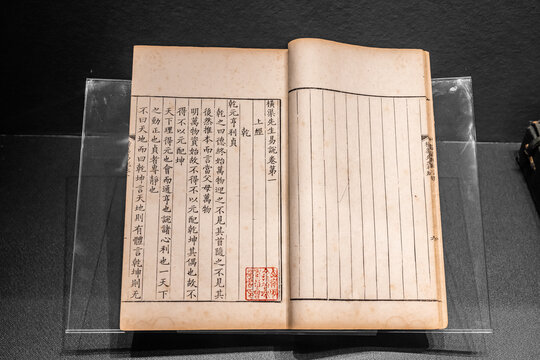 橫渠先生易說卷第一
上經
乾
乾元亨利貞
乾之四德終始萬物迎之不見其首隨之不見其
後然推本而言當父母萬物
明萬物資始故不得不以元配乾坤其偶也故不
得不以元配坤
天下理得元也會而通亨也說諸心利也一天下
之動正也貞者專靜也
不曰天地而曰乾坤言天地則有體言乾坤則无